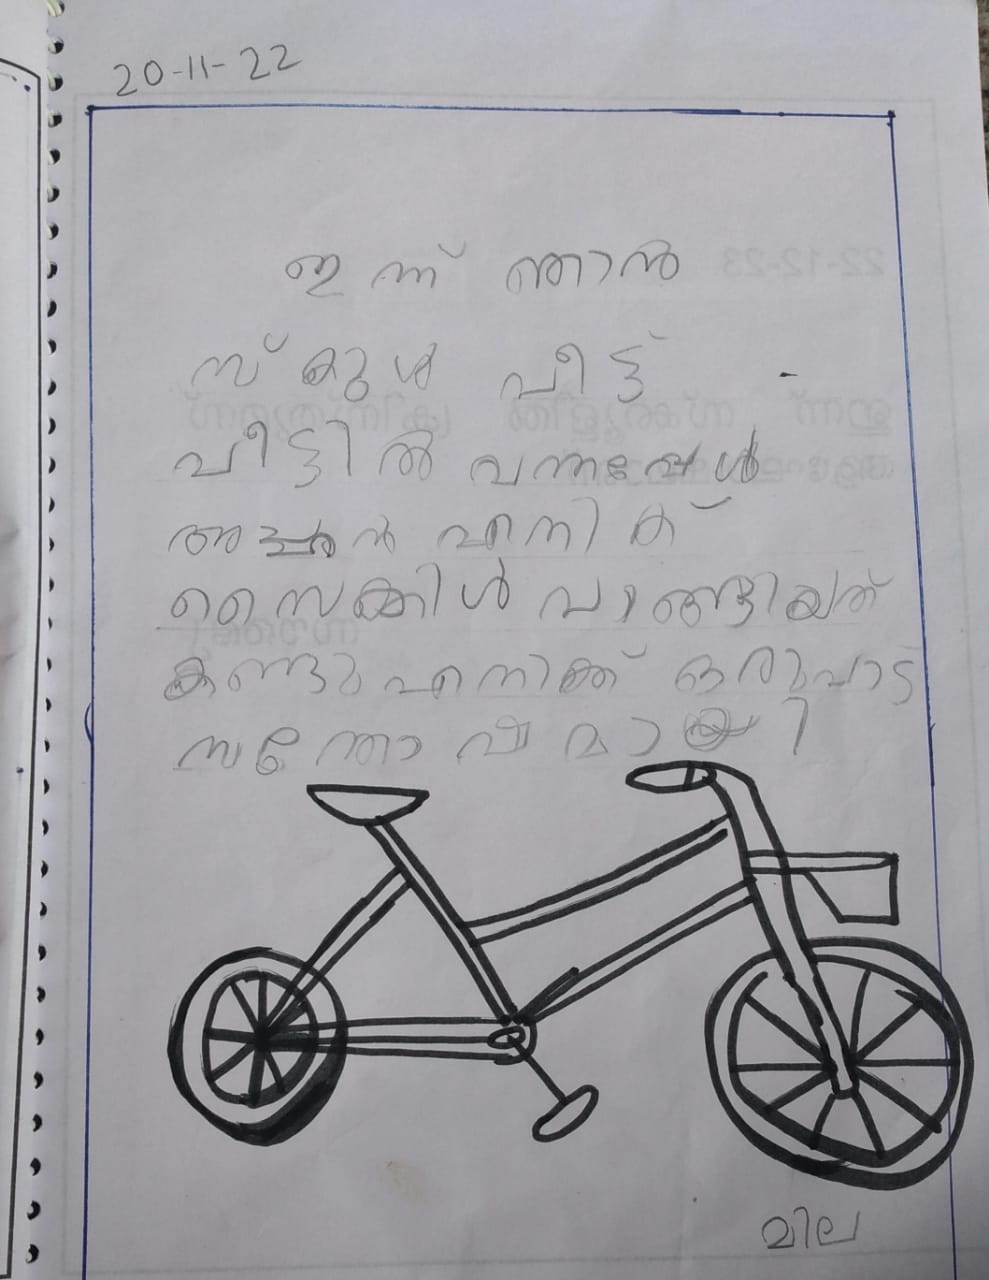 20-11-22
ഇന്ന് ഞാൻ
സ്കൂൾ വിട്ട്
വീട്ടിൽ വന്നപ്പോൾ
അച്ഛൻ എനിക്
സൈക്കിൾ വാങ്ങിയത്
കണ്ടു എനിക്ക് ഒരുപാട്
സന്തോഷമായി
മില